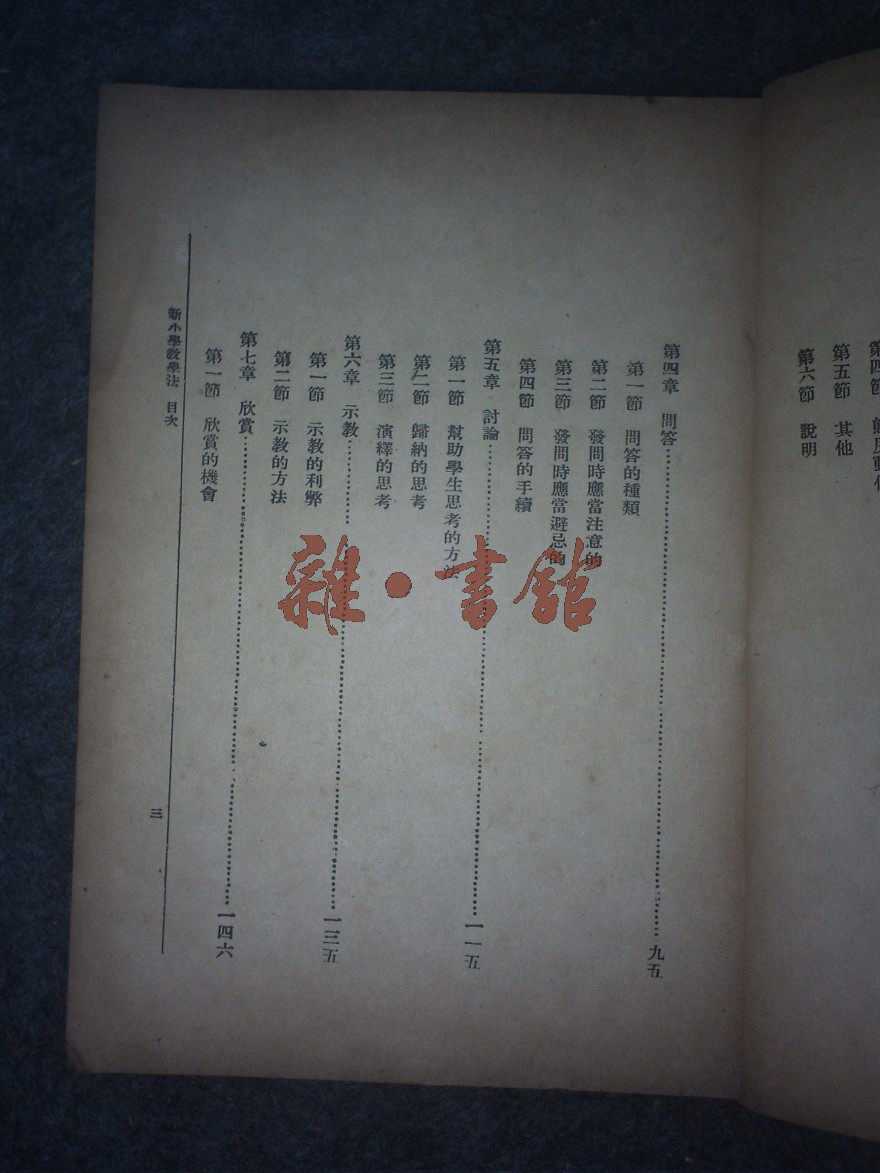 第五節　其他
第六節　說明
第四章　問答……九五
第一節　問答的種類
第二節　發問時應當注意的
第三節　發問時應當避忌的
第四節　問答的手續
第五章　討論……一一五
第一節　幫助學生思考的方法
第二節　歸納的思考
第三節　演繹的思考
第六章　示教……一三五
第一節　示教的利弊
第二節　示教的方法
第七章　欣賞……一四六
第一節　欣賞的機會
新小學教學法　目次
三
雜·書館